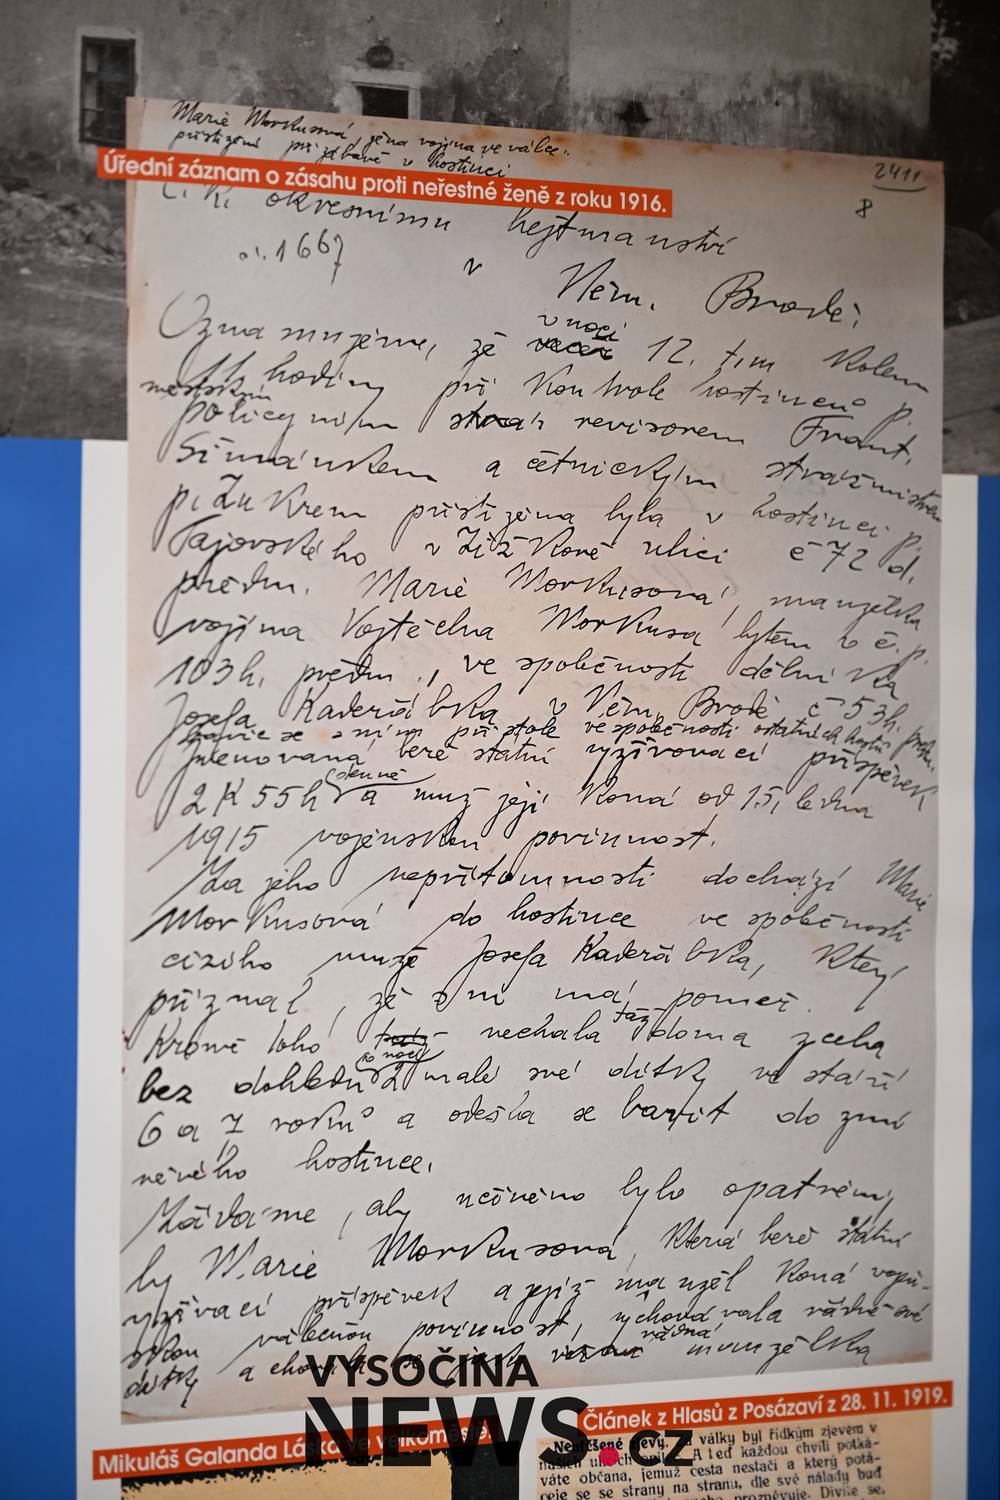 Marie Morkusová, žena vojína ve válce.
přistižena při zábavě v hostinci
Úřední záznam o zásahu proti neřestné ženě z roku 1916.
2411
8
C. K. okresnímu hejtmanství
č. 1667
v
Něm. Brodě.
v noci
Oznamujeme, že večer 12. t.m. kolem
11. hodiny při kontrole hostinců p.
městským
policejním stráž revisorem Frant.
Šimánkem a četnickým strážmistrem
p. Zukrem přistižena byla v hostinci p.
Tajovského v Žižkově ulici č 72 d.
předm. Marie Morkusová, manželka
vojína Vojtěcha Morkusa bytem v č. p.
103 h. předm., ve společnosti dělníka
Josefa Kadeřábka v Něm. Brodě č 53 h. předm.
bavíc se s ním při stole ve společnosti ostatních hostů
Jmenovaná bere státní vyživovací příspěvek
denně
2 K 55 h a muž její koná od 15. ledna
1915 vojenskou povinnost.
Za jeho nepřítomnosti dochází Marie
Morkusová do hostince ve společnosti
cizího muže Josefa Kadeřábka, který
přiznal, že s ní má poměr.
též
Kromě toho nechala doma zcela
v noci
bez dohledu 2 malé své dítky ve stáří
6 a 7 roků a odešla se bavit do zmí
něného hostince.
Žádáme, aby učiněno bylo opatření,
by Marie Morkusová, která bere státní
vyživovací příspěvek a jejíž manžel koná vojen-
skou válečnou povinnost, vychovávala řádně své
řádná
dítky a chovala se jako manželka
Mikuláš Galanda Láska ve velkoměstě
Článek z Hlasů z Posázaví z 28. 11. 1919.
VYSOČINA
NEWS.CZ
Netěšené zjevy. Za války byl řídkým zjevem v
našich ulicích opilec. A teď každou chvíli potká-
váte občana, jemuž cesta nestačí a který potá-
ceje se se strany na stranu, dle své nálady buď
prozpěvuje. Divíte se,